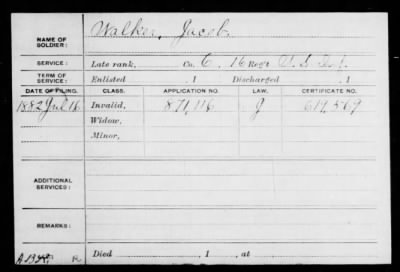 NAME OF SOLDIER: Walker, Jacob.
SERVICE: Late rank, Co. C, 16 Reg't U.S. Inf.
TERM OF SERVICE: Enlisted , 1 Discharged , 1
DATE OF FILING. CLASS. APPLICATION NO. LAW. CERTIFICATE NO.
1882 Jul 16 Invalid, 871,116 J 619,569
Widow,
Minor,
ADDITIONAL SERVICES:
REMARKS:
Died , 1 , at
R